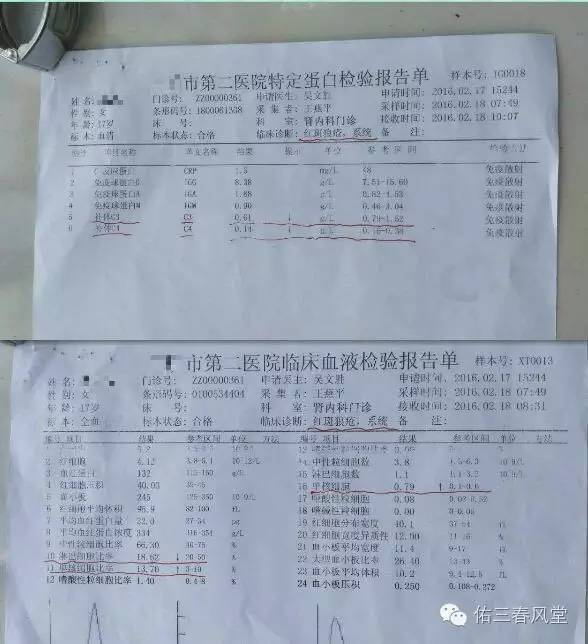 市第二医院特定蛋白检验报告单 样本号: IG0018
姓 名: 门诊号: ZZ00000361 申请医生: 吴文胜 申请时间: 2016.02.17 15244
性 别: 女 条形码号: 1800061308 采 集 者: 王燕平 采样时间: 2016.02.18 07:49
年 龄: 17岁 床 号: 科 室: 肾内科门诊 接收时间: 2016.02.18 10:07
标 本: 血清 标本状态: 合格 临床诊断: 红斑狼疮,系统 备 注:
项目名称 英文名称 结果 提示 单位 参考区间
1 CRP 1.5 mg/L <8 免疫散射
2 免疫球蛋白G IGG 8.38 g/L 7.51-15.60 免疫散射
3 免疫球蛋白A IGA 1.68 g/L 0.82-4.53 免疫散射
4 免疫球蛋白M IGM 0.90 g/L 0.46-3.04 免疫散射
5 补体C3 C3 0.61 ↓ g/L 0.79-1.52 免疫散射
6 补体C4 C4 0.14 ↓ g/L 免疫散射
市第二医院临床血液检验报告单 样本号: XT0013
姓 名: 门诊号: ZZ00000361 申请医生: 吴文胜 申请时间: 2016.02.17 15244
性 别: 女 条形码号: 0100534404 采 集 者: 王燕平 采样时间: 2016.02.18 07:49
年 龄: 17岁 床 号: 科 室: 肾内科门诊 接收时间: 2016.02.18 08:31
标 本: 全血 标本状态: 合格 临床诊断: 红斑狼疮,系统 备 注:
编号 项目 结果 参考区间 单位 方法 编号 项目 结果 参考区间 单位 方法
2 红细胞 4.12 3.8-5.1 14 中性粒细胞数 3.8
132 15 淋巴细胞数 1.1
4 红细胞压积 40.03 16 单核细胞 0.79 ↑ 0.1-0.6
5 血小板 245 125-350 17 嗜酸性粒细胞 0.08 0.02-0.52
6 红细胞平均体积 82-100 fL 18 嗜碱性粒细胞
7 平均血红蛋白量 27-34 pg 19 红细胞分布宽度 40.1 37-54
8 平均血红蛋白浓度 334 316-354 20 红细胞宽度异质性 12.90
9 中性粒细胞比率 66.30 40-75 % 21 血小板平均宽度 11.4 9-17
10 淋巴细胞比率 18.62 ↓ 20-50 22 大血小板比率 26.40 13-43
11 单核细胞比率 13.70 ↑ 3-10 23 血小板平均体积 10.2 9.4-12.5 fL
12 嗜酸性粒细胞比率 1.40 0.4-8 % 24 血小板压积 0.250 0.108-0.272
佑三春风堂